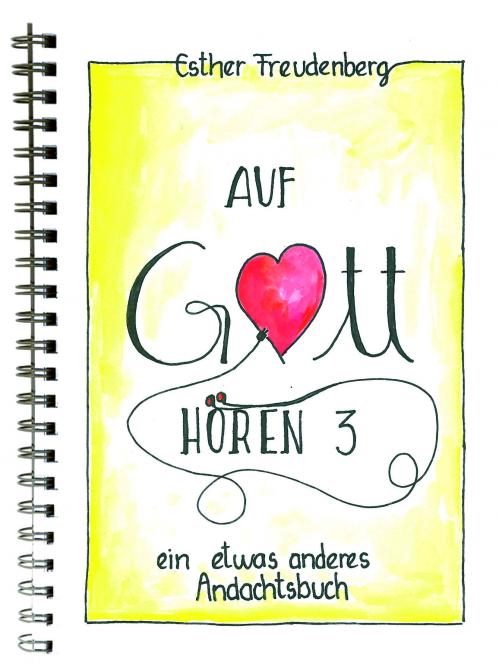 Esther Freudenberg
AUF
Gott
HÖREN 3
ein etwas anderes
Andachtsbuch